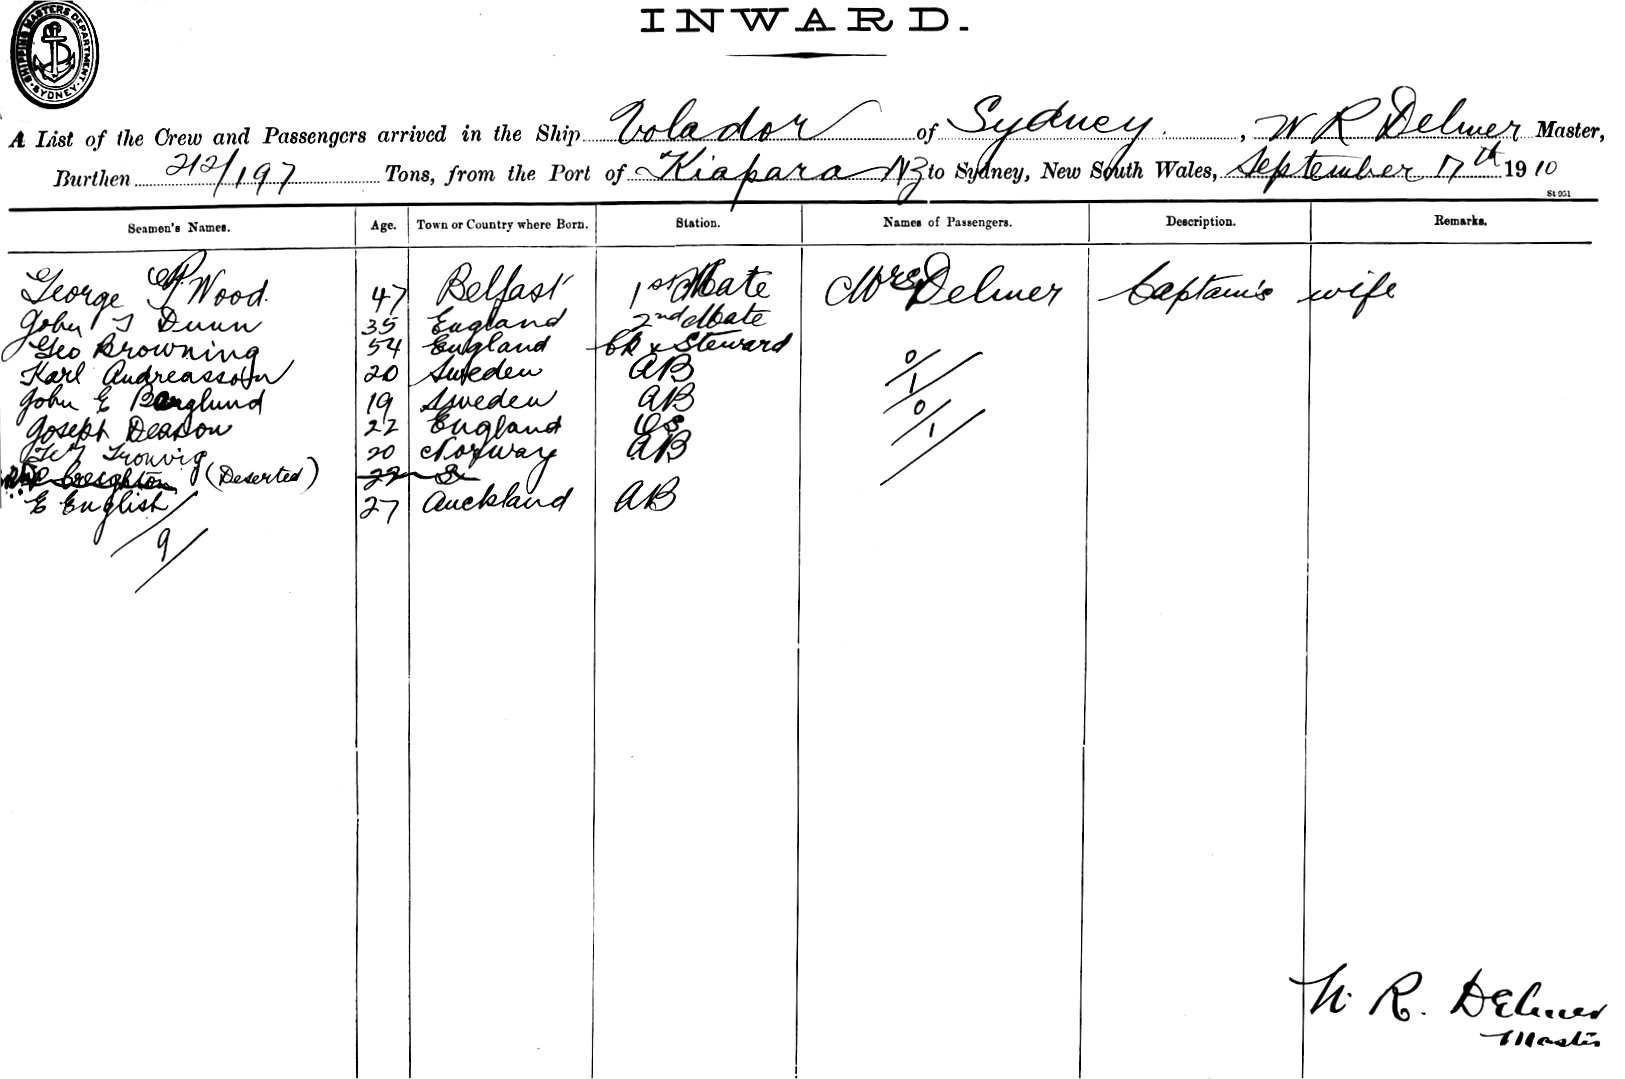 SHIPPING MASTERS DEPARTMENT. SYDNEY
INWARD.
A List of the Crew and Passengers arrived in the Ship Volador of Sydney, W R Delmer Master,
Burthen 212/197 Tons, from the Port of Kiapara NZ to Sydney, New South Wales, September 17th 1910
St 951
Seamen's Names. Age. Town or Country where Born. Station. Names of Passengers. Description. Remarks.
George Wood 47 Belfast 1st Mate Mrs Delmer Captain's wife
John T Dunn 35 England 2nd Mate
Geo Browning 54 England Ck & Steward
Karl Andreasson 20 Sweden AB 0/1
John E Berglund 19 Sweden AB 0/1
Joseph Deason 22 England OS
Tronvig 20 Norway AB
Creighton (Deserted) 22
E English 27 Auckland AB
9/
W. R. Delmer
Master